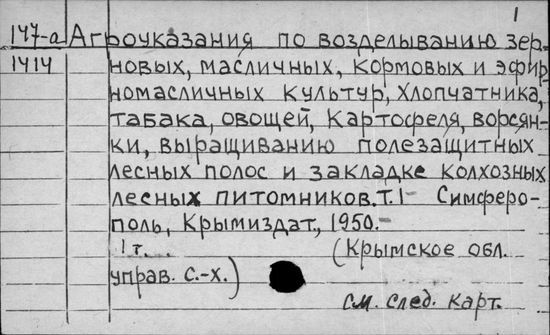 1
147-а Агроуказания по возделыванию зер-
1414 новых, масличных, кормовых и эфир
номасличных культур, хлопчатника,
табака, овощей, картофеля, ворсян-
ки, выращиванию полезащитных
лесных полос и закладке колхозных
лесных питомников. Т.1 Симферо-
поль, Крымиздат, 1950.-
1 т... (Крымское обл.
управ. с.-х.)
см. след. карт.